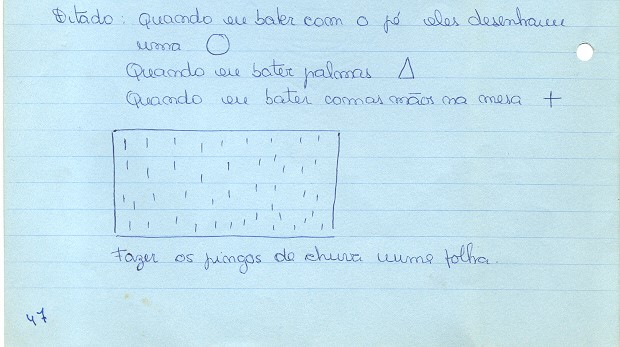 Ditado: Quando eu bater com o pé eles desenham
uma ○
Quando eu bater palmas △
Quando eu bater com as mãos na mesa +
Fazer os pingos de chuva numa folha.
47